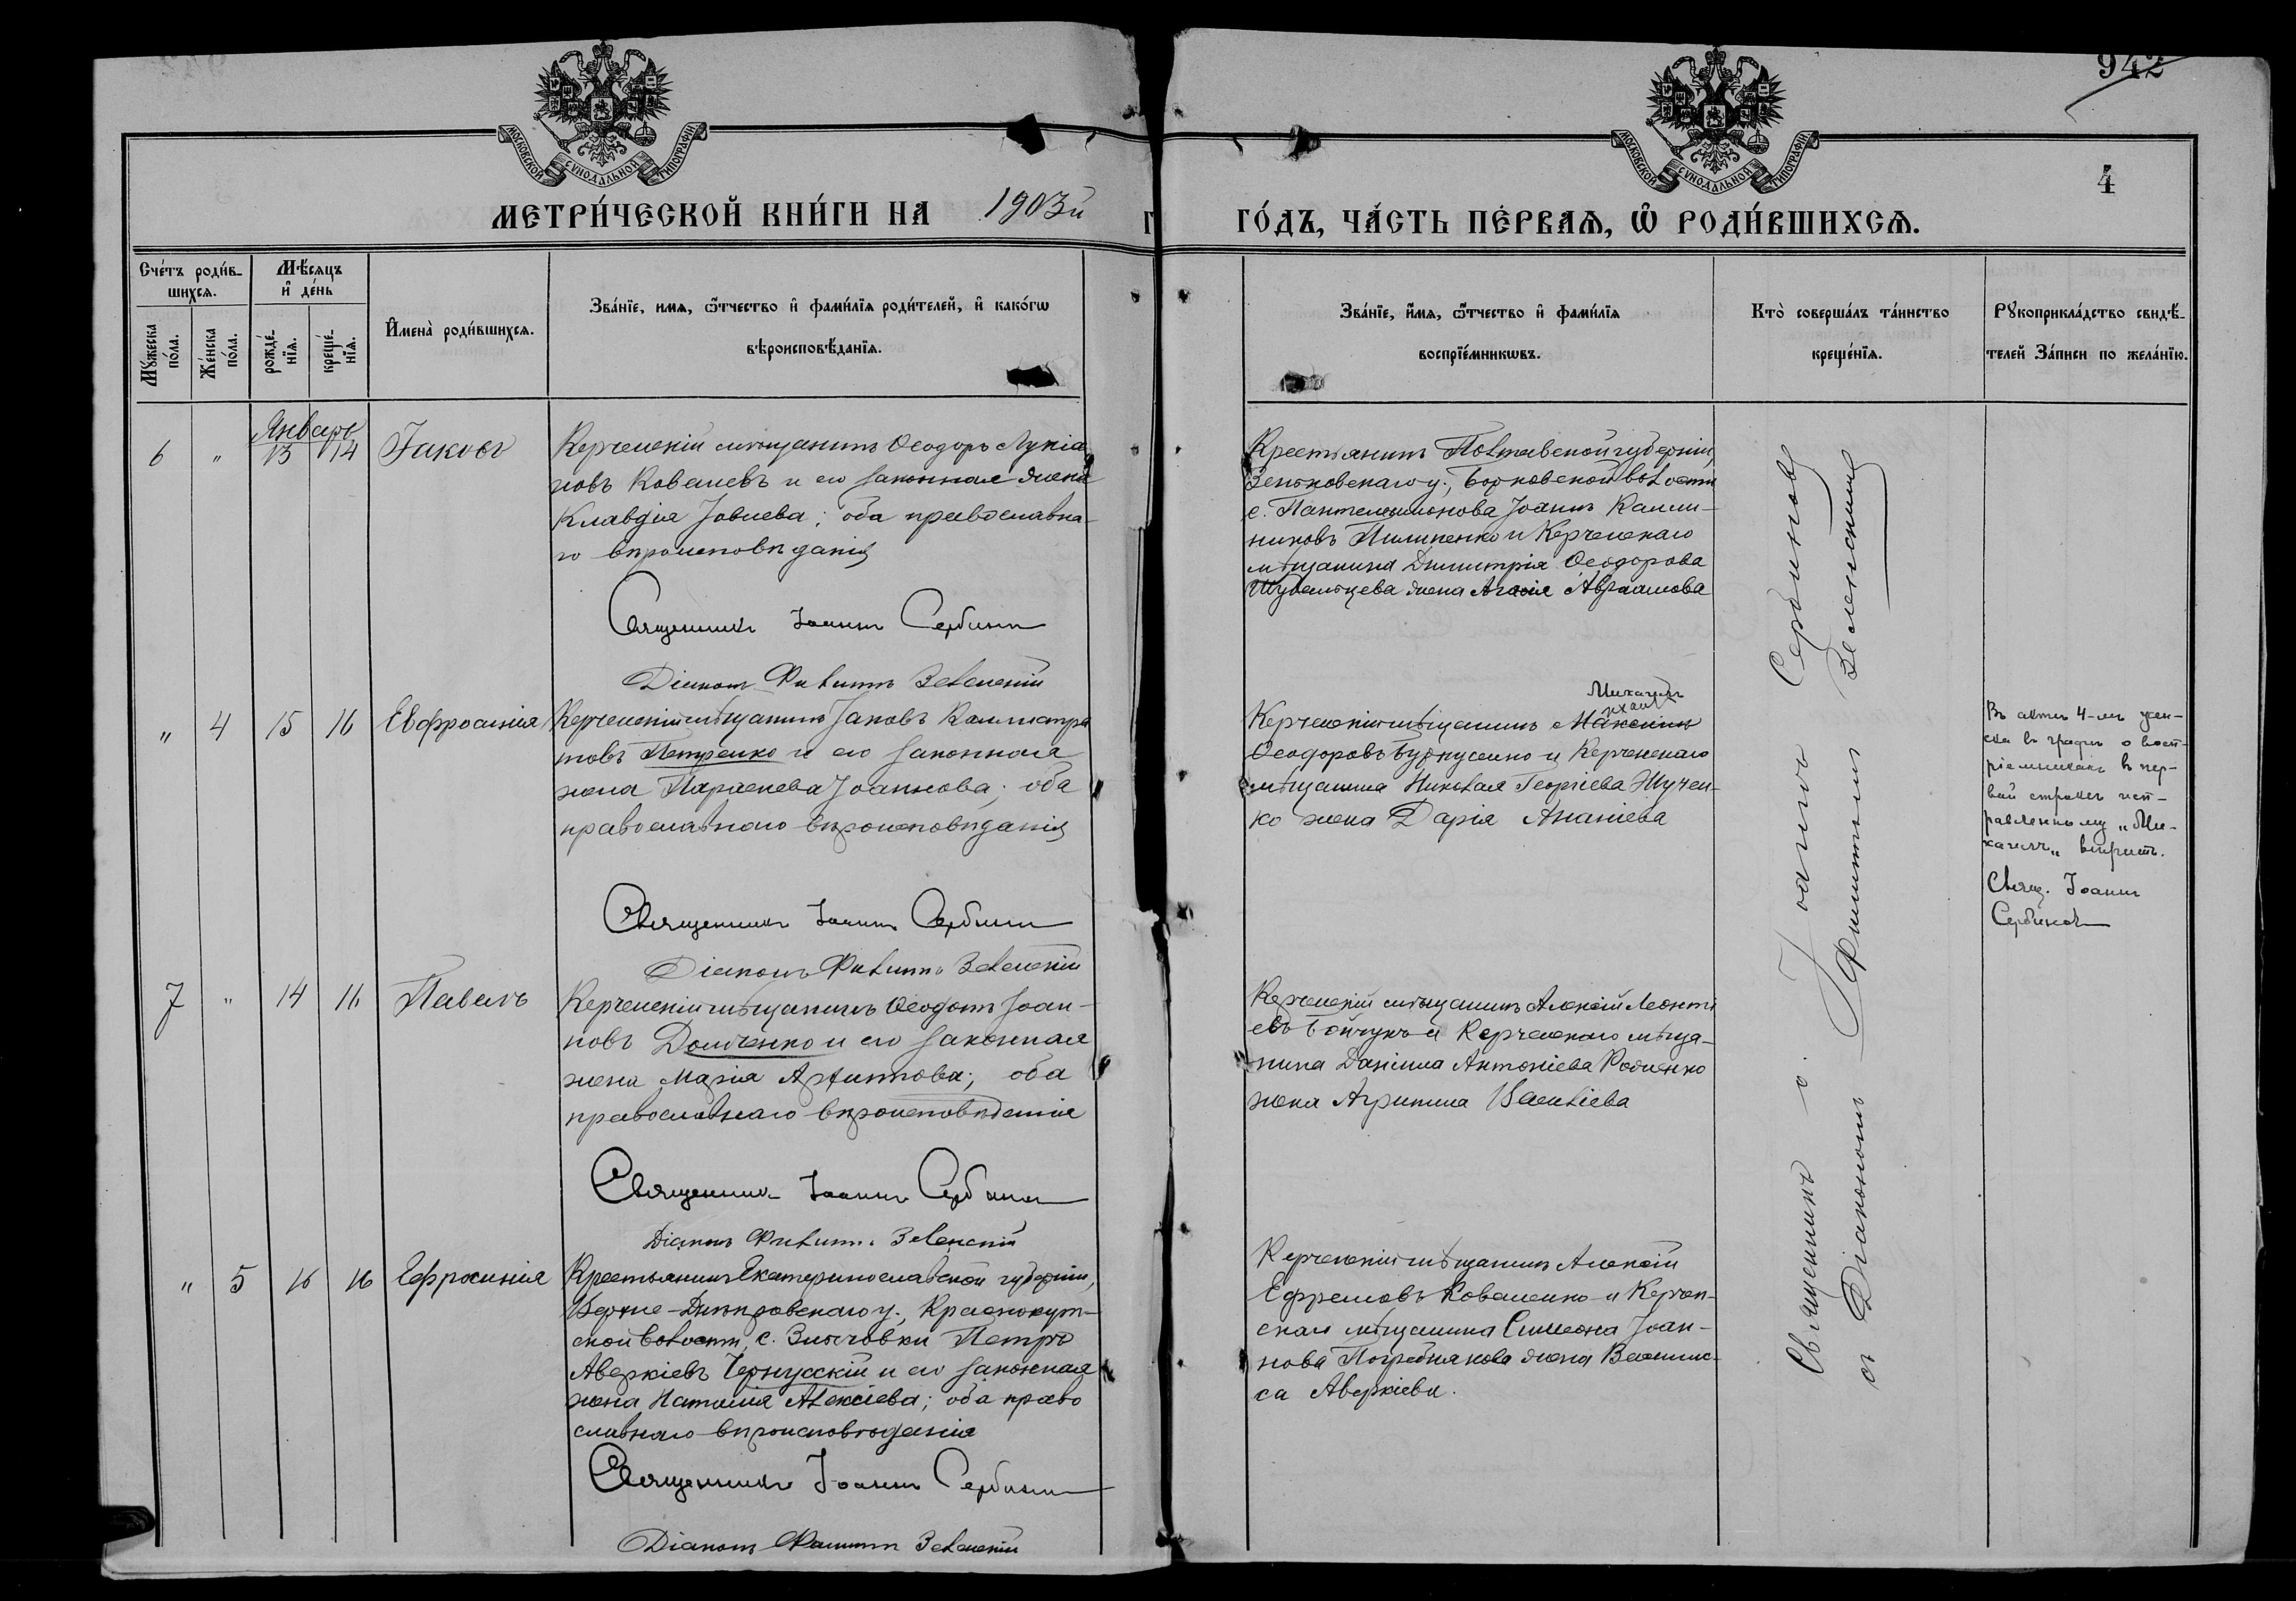 942
4
МОСКОВСКОЙ СѴНОДАЛЬНОЙ ТИПОГРАФІИ
МОСКОВСКОЙ СѴНОДАЛЬНОЙ ТИПОГРАФІИ
МЕТРИ́ЧЕСКОЙ КНИ́ГИ НА 1903й
ГО́ДЪ, ЧА́СТЬ ПЕ́РВАѦ, Ѡ҆ РОДИ́ВШИХСѦ.
Сче́тъ роди́в-
шихсѧ.
Мꙋ́жеска по́ла.
Же́нска по́ла.
Мѣ́сѧцъ
и҆ де́нь
рожде́-
нїѧ.
креще́-
нїѧ.
И҆мена̀ роди́вшихсѧ.
Зва́нїе, имѧ, ѻ҆́тчество и҆ фами́лїѧ роди́телей, и҆ како́гѡ
вѣроисповѣ́данїѧ.
Зва́нїе, и҆́мѧ, ѻ҆́тчество и҆ фами́лїѧ
воспрїе́мникѡвъ.
Кто̀ соверша́лъ та́инство
креще́нїѧ.
Рꙋкоприкла́дство свидѣ́-
телей За́писи по жела́нїю.
Январь
6 " 13 14 Іаковъ
Керченскій мѣщанинъ Ѳеодоръ Лукіа-
новъ Ковалевъ и его законная жена
Клавдія Іовлева; оба православна-
го вѣроисповѣданія
Священникъ Іоаннъ Сербиновъ
Діаконъ Филиппъ Зеленскій
Крестьянинъ Полтавской губерніи,
Зеньковскаго у., Борковской волости
с. Пантелеимонова Іоаннъ Калли-
никовъ Пилипенко и Керченскаго
мѣщанина Димитрія Ѳеодорова
жена Агаѳія Авраамова
" 4 15 16 Евфросинія
Керченскій мѣщанинъ Іаковъ Каллистра
товъ Петренко и его законная
жена Параскева Іоаннова; оба
православнаго вѣроисповѣданія
Священникъ Іоаннъ Сербиновъ
Діаконъ Филиппъ Зеленскій
Михаилъ
Керченскій мѣщанинъ
Ѳеодоровъ и Керченскаго
мѣщанина Николая Георгіева Жучен-
ко жена Дарія Ананіева
Въ актѣ 4-мъ жен-
ска въ графѣ о восп-
ріемникахъ въ пер-
вой строкѣ исп-
равленному „Ми-
хаилъ„ вѣрить.
Свящ. Іоаннъ
Сербиновъ
7 " 14 16 Павелъ
Керченскій мѣщанинъ Ѳеодотъ Іоан-
новъ Домченко и его законная
жена Марія Архиппова; оба
православнаго вѣроисповѣданія
Священникъ Іоаннъ Сербиновъ
Діаконъ Филиппъ Зеленскій
Керченскій мѣщанинъ Алексій Леонті
евъ Бойчукъ и Керченскаго мѣща-
нина Даніила Антоніева Родненко
жена Агрипина Васильева
" 5 16 16 Ефросинія
Крестьянинъ Екатеринославской губерніи,
Верхне-Днѣпровскаго у., Краснокут-
ской волости, с. Петръ
Аверкіевъ Чернусскій и его законная
жена Наталія Алексіева; оба право
славнаго вѣроисповѣданія
Священникъ Іоаннъ Сербиновъ
Діаконъ Филиппъ Зеленскій
Керченскій мѣщанинъ Алексій
Ефремовъ Коваленко и Керчен-
скаго мѣщанина Симеона Іоан-
нова Погребнякова жена Василис-
са Аверкіева.
Священникъ о. Іоаннъ Сербиновъ
съ Діакономъ Филиппомъ Зеленскимъ